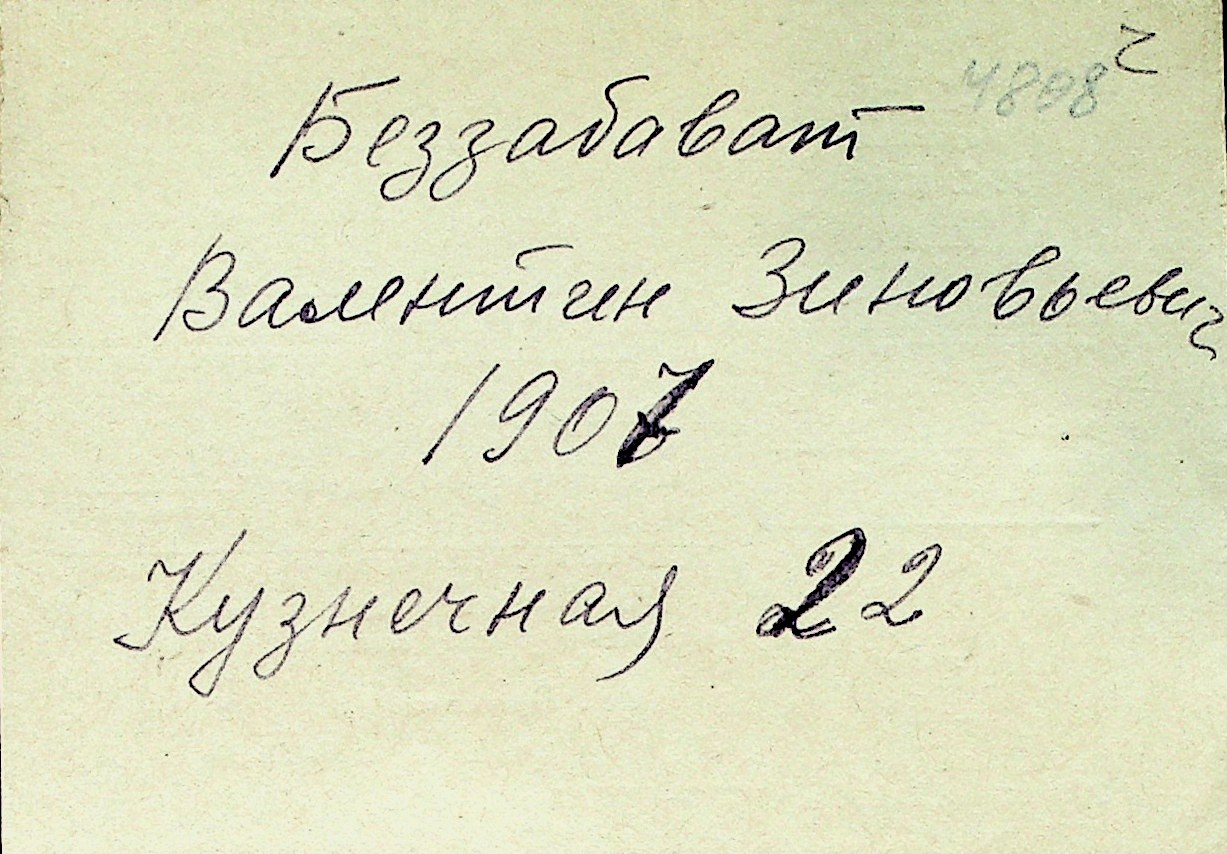 4808 ч
Беззабават
Валентин Зиновьевич
1907
Кузнечная 22